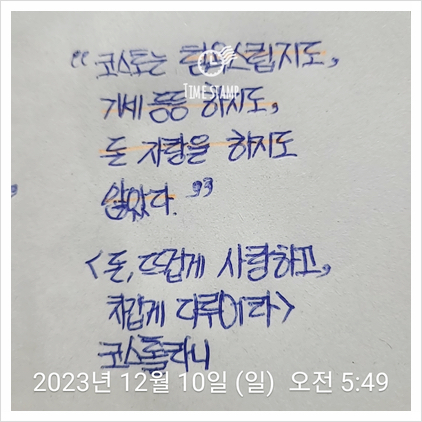 “코스토는
TIME STAMP
기세등등 하지도,
돈 자랑을 하지도
않았다.”
<돈, 뜨겁게 사랑하고,
차갑게 다루어라>
코스톨라니
2023년 12월 10일 (일) 오전 5:49